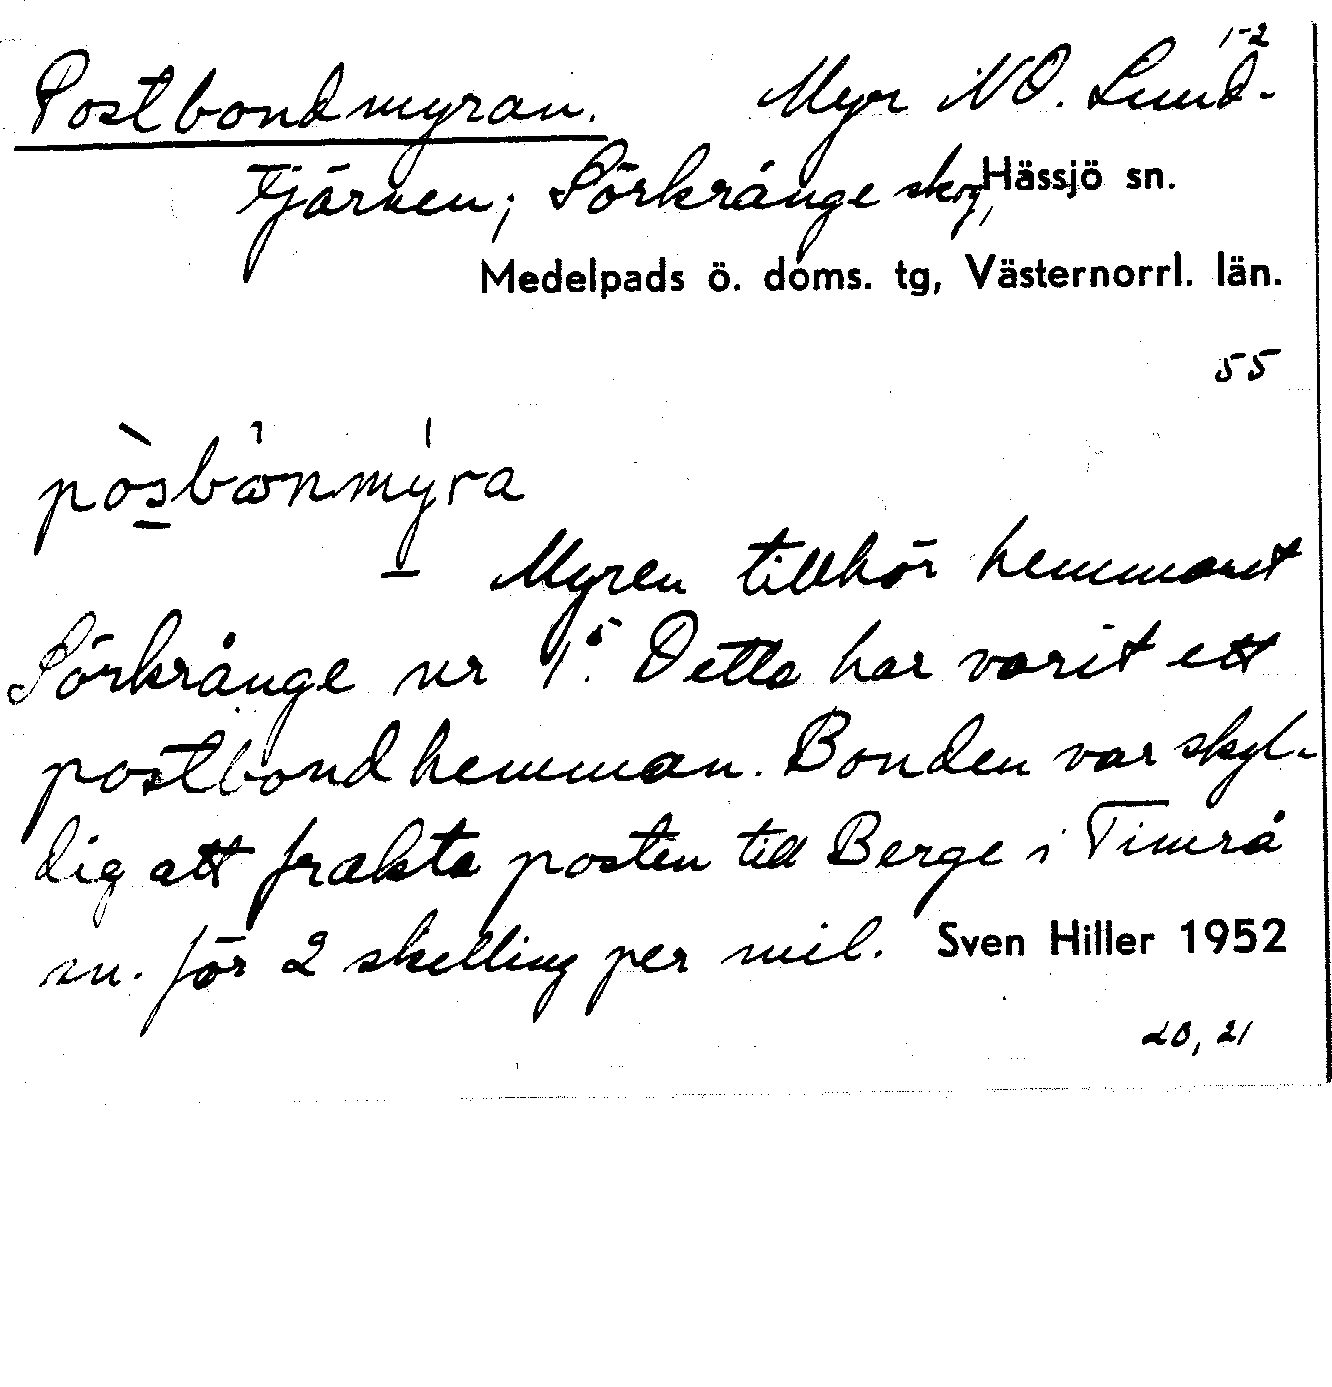 1-2
Postbondmyran. Myr NO. Lund-
tjärnen; Sörkrånge skog, Hässjö sn.
Medelpads ö. doms. tg, Västernorrl. län.
55
Myren tillhör hemmanet
Sörkrånge nr 1⁵. Detta har varit ett
postbondhemman. Bonden var skyl-
dig att frakta posten till Berge i Timrå
sn. för 2 skelling per mil. Sven Hiller 1952
20, 21